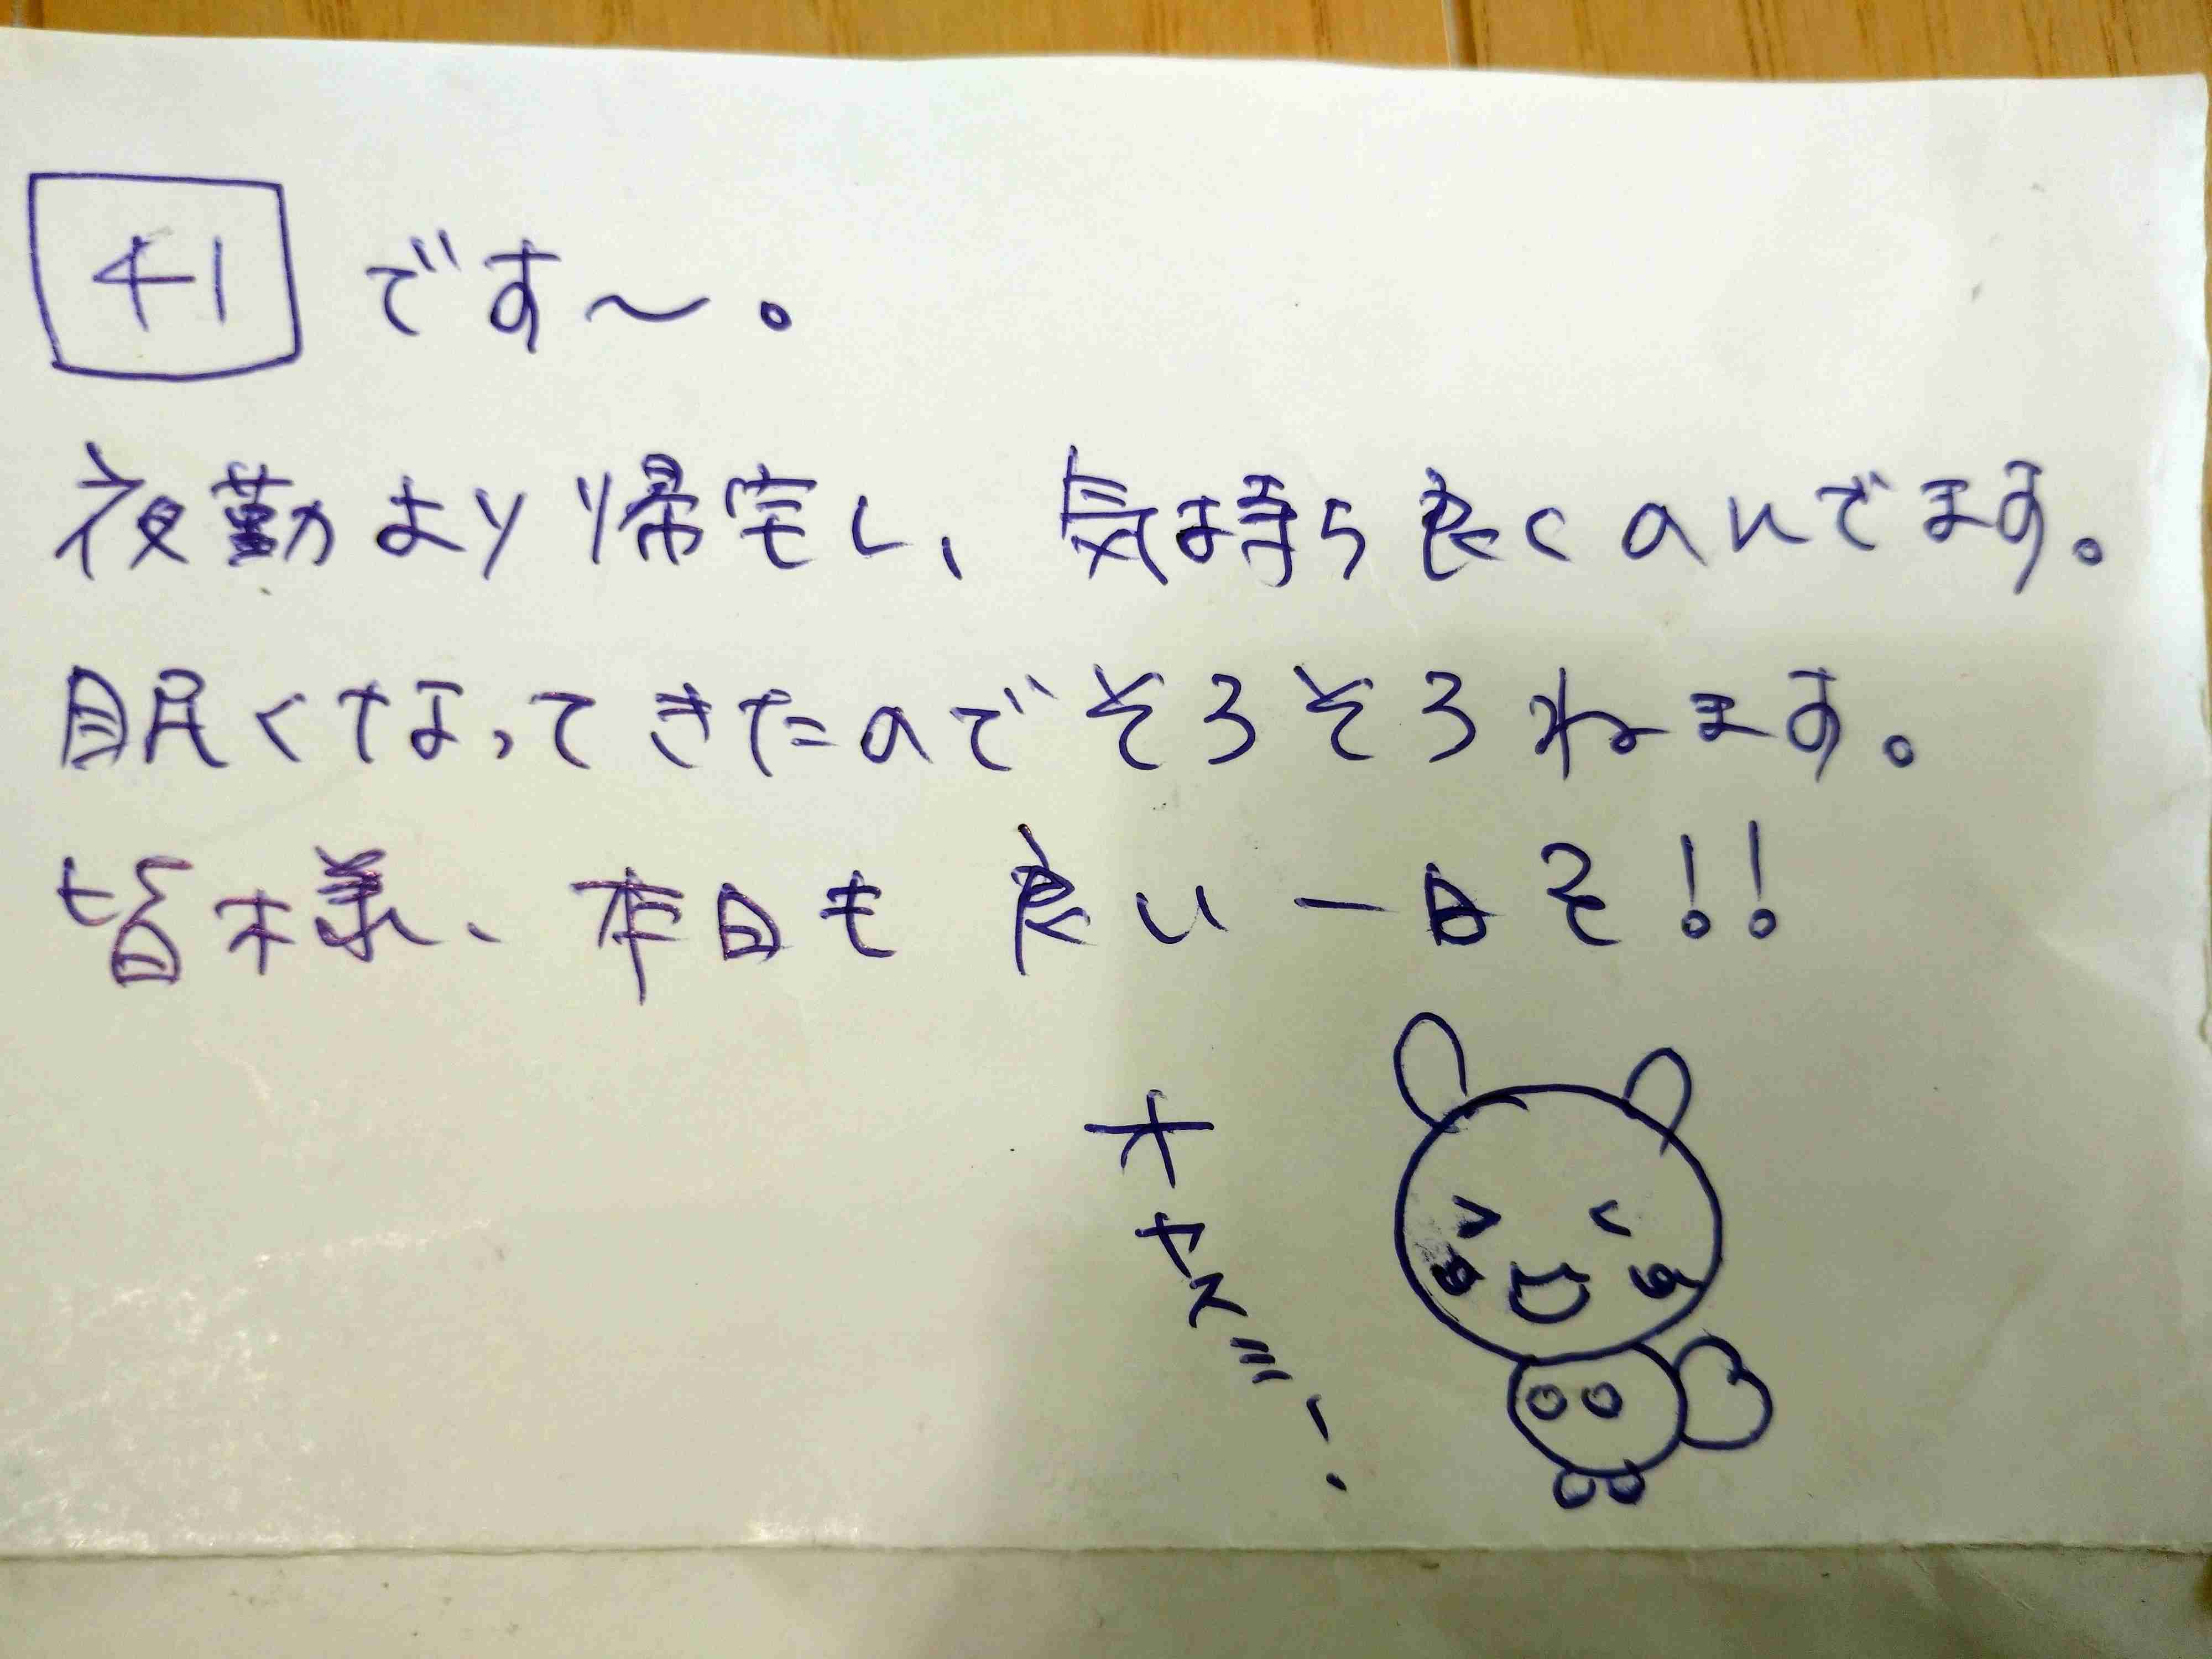 41 です〜。
夜勤より帰宅し、気持ち良くのんでます。
眠くなってきたのでそろそろねます。
皆様、本日も良い一日を!!
オヤスミー!